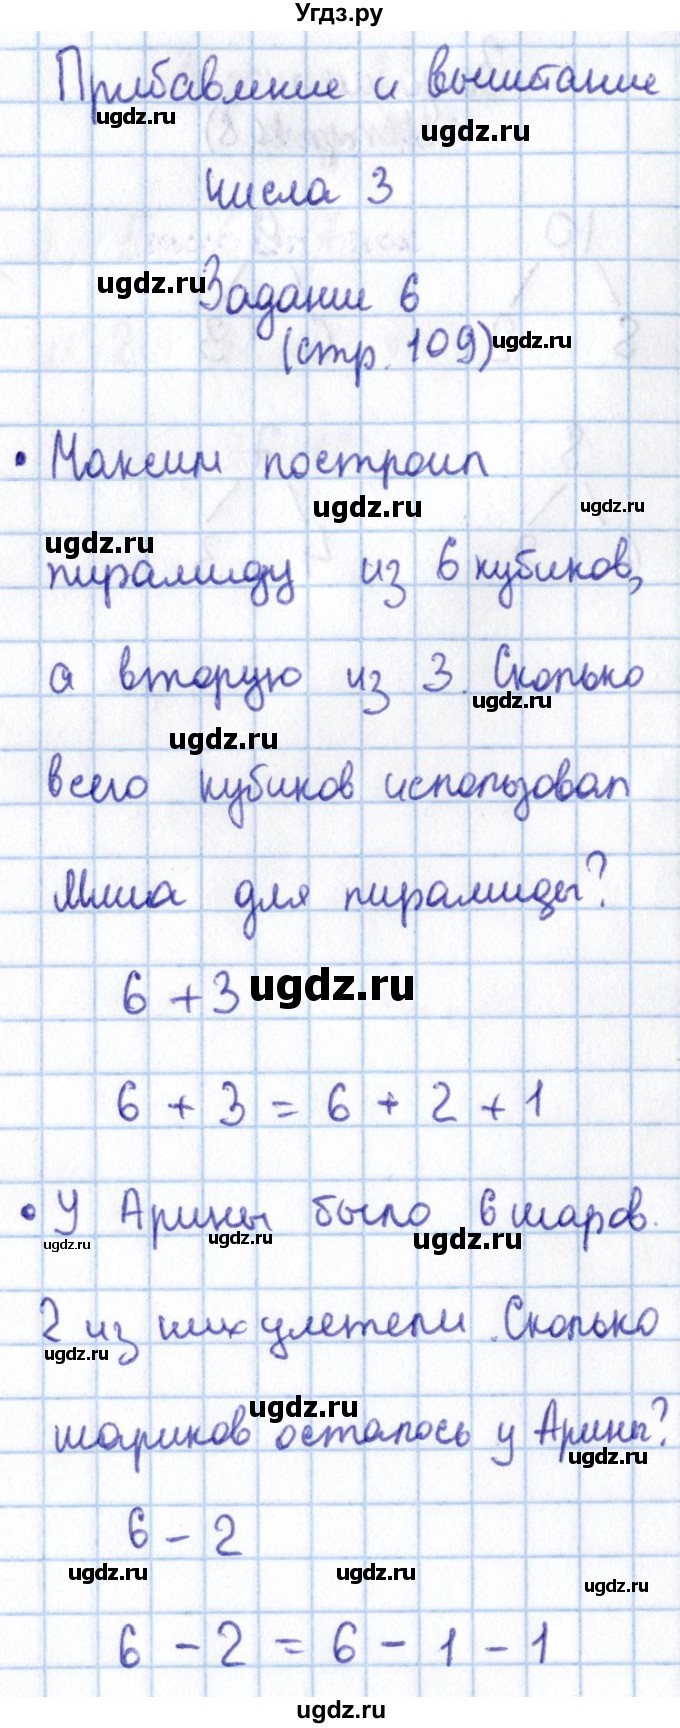 Угдз.ру
Прибавление и вычитание
ugdz.ru
ugdz.ru
числа 3
ugdz.ru
Задание 6
(стр. 109)
ugdz.ru
• Максим построил
ugdz.ru
ugdz.ru
ugdz.ru
пирамиду из 6 кубиков,
а вторую из 3. Сколько
ugdz.ru
ugdz.ru
всего кубиков использовал
Миша для пирамиды?
6 + 3
ugdz.ru
6 + 3 = 6 + 2 + 1
• У Арины было 6 шаров.
ugdz.ru
ugdz.ru
ugdz.ru
2 из них улетели. Сколько
ugdz.ru
ugdz.ru
шариков осталось у Арины?
ugdz.ru
6 - 2
ugdz.ru
ugdz.ru
ugdz.ru
6 - 2 = 6 - 1 - 1
ugdz.ru